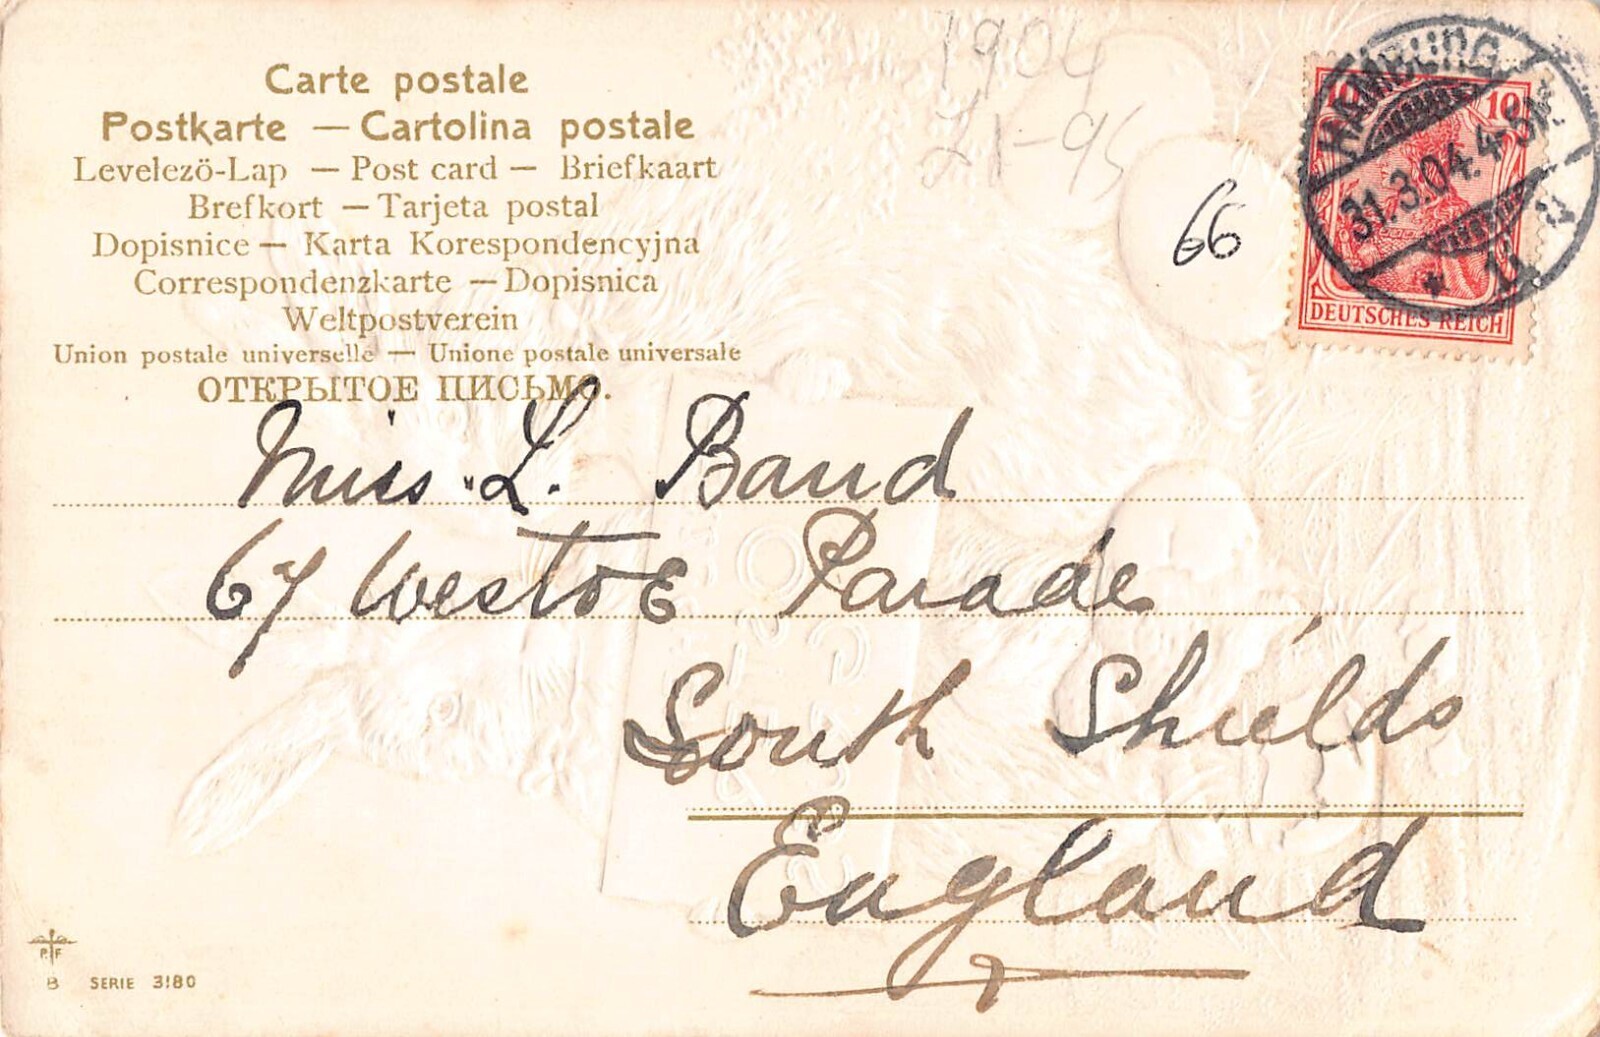 Carte postale
Postkarte — Cartolina postale
Levelezö-Lap — Post card — Briefkaart
Brefkort — Tarjeta postal
Dopisnice — Karta Korespondencyjna
Correspondenzkarte — Dopisnica
Weltpostverein
Union postale universelle — Unione postale universale
ОТКРЫТОЕ ПИСЬМО.
1904
66
HAMBURG
31.3.04.4-5N.
10
DEUTSCHES REICH
Miss. L. Band
67 Westoe Parade
South Shields
England
P. F
B SERIE 3180